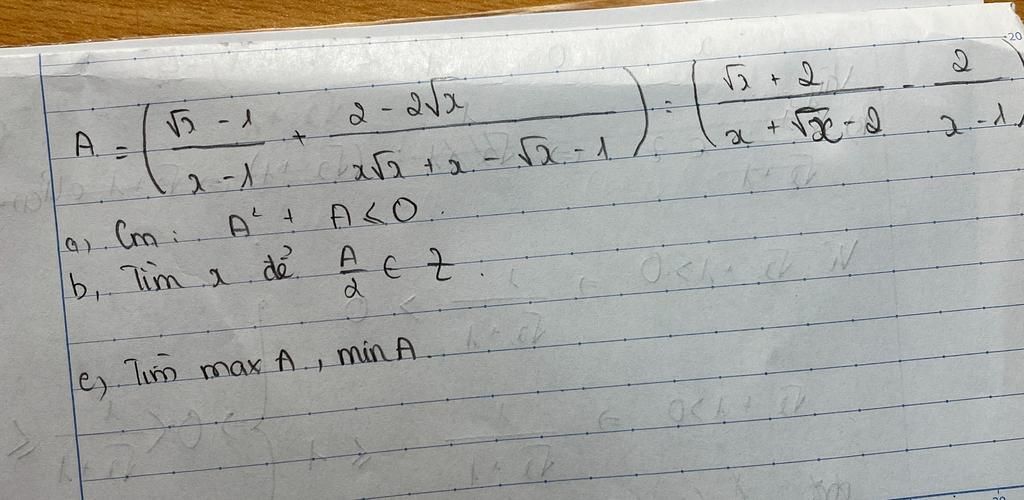 A = ( (√x - 1)/(x - 1) + (2 - 2√x)/(x√x + x - √x - 1) ) : ( (√x + 2)/(x + √x - 2) - 2/(x - 1) )
a, Cm: A² + A ≤ 0.
b, Tìm x để A/2 ∈ Z.
c, Tìm max A, min A.